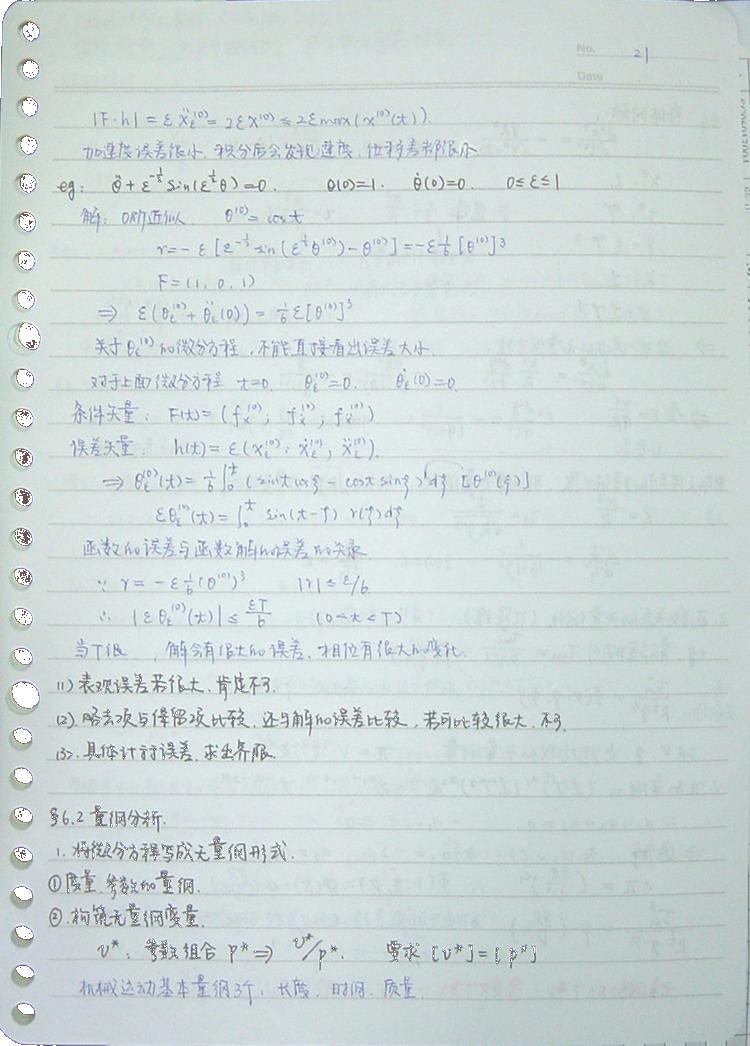 No. 21
Date
|F·h| = εẍ_ε^(0) = 2εx^(0) ≤ 2ε max(x^(0)(t)).
加速度误差很小, 积分后会发现速度, 位移差都很小
eg: θ̈ + ε^(-1/2) sin(ε^(1/2)θ) = 0. θ(0)=1. θ̇(0)=0. 0≤ε≤1
解: 0阶近似 θ^(0) = cos t
r = -ε[ε^(-1/2) sin(ε^(1/2)θ^(0)) - θ^(0)] = -ε 1/6 [θ^(0)]³
F = (1, 0, 1)
⇒ ε(θ_ε^(0) + θ̈_ε(0)) = 1/6 ε[θ^(0)]³
关于θ_ε^(0)的微分方程, 不能直接看出误差大小.
对于上面微分方程 t=0. θ_ε^(0)=0. θ̇_ε(0)=0.
条件矢量: F(t) = (f_x^(0); f_ẋ^(0); f_ẍ^(0))
误差矢量: h(t) = ε(x_ε^(0); ẋ_ε^(0); ẍ_ε^(0)).
⇒ θ_ε^(0)(t) = 1/6 ∫₀ᵗ (sin t cos ρ - cos t sin ρ) dρ [θ^(0)(ρ)]
εθ_ε^(0)(t) = ∫₀ᵗ sin(t-ρ) r(ρ) dρ
函数的误差与函数解的误差的关系
∵ r = -ε 1/6 (θ^(0))³ |r| ≤ ε/6.
∴ |εθ_ε^(0)(t)| ≤ εT/6 (0<t<T)
当T很 , 解会有很大的误差, 相位有很大的变化.
(1) 表观误差若很大, 肯定不行.
(2). 略去项与保留项比较, 还与解的误差比较, 若可比较很大, 不行.
(3). 具体计算误差, 求出界限.
§6.2 量纲分析.
1. 将微分方程写成无量纲形式.
① 变量, 参数的量纲.
②. 构筑无量纲变量.
v*, 参数组合 p* ⇒ v*/p*. 要求 [v*] = [p*]
机械运动基本量纲3个, 长度, 时间, 质量.